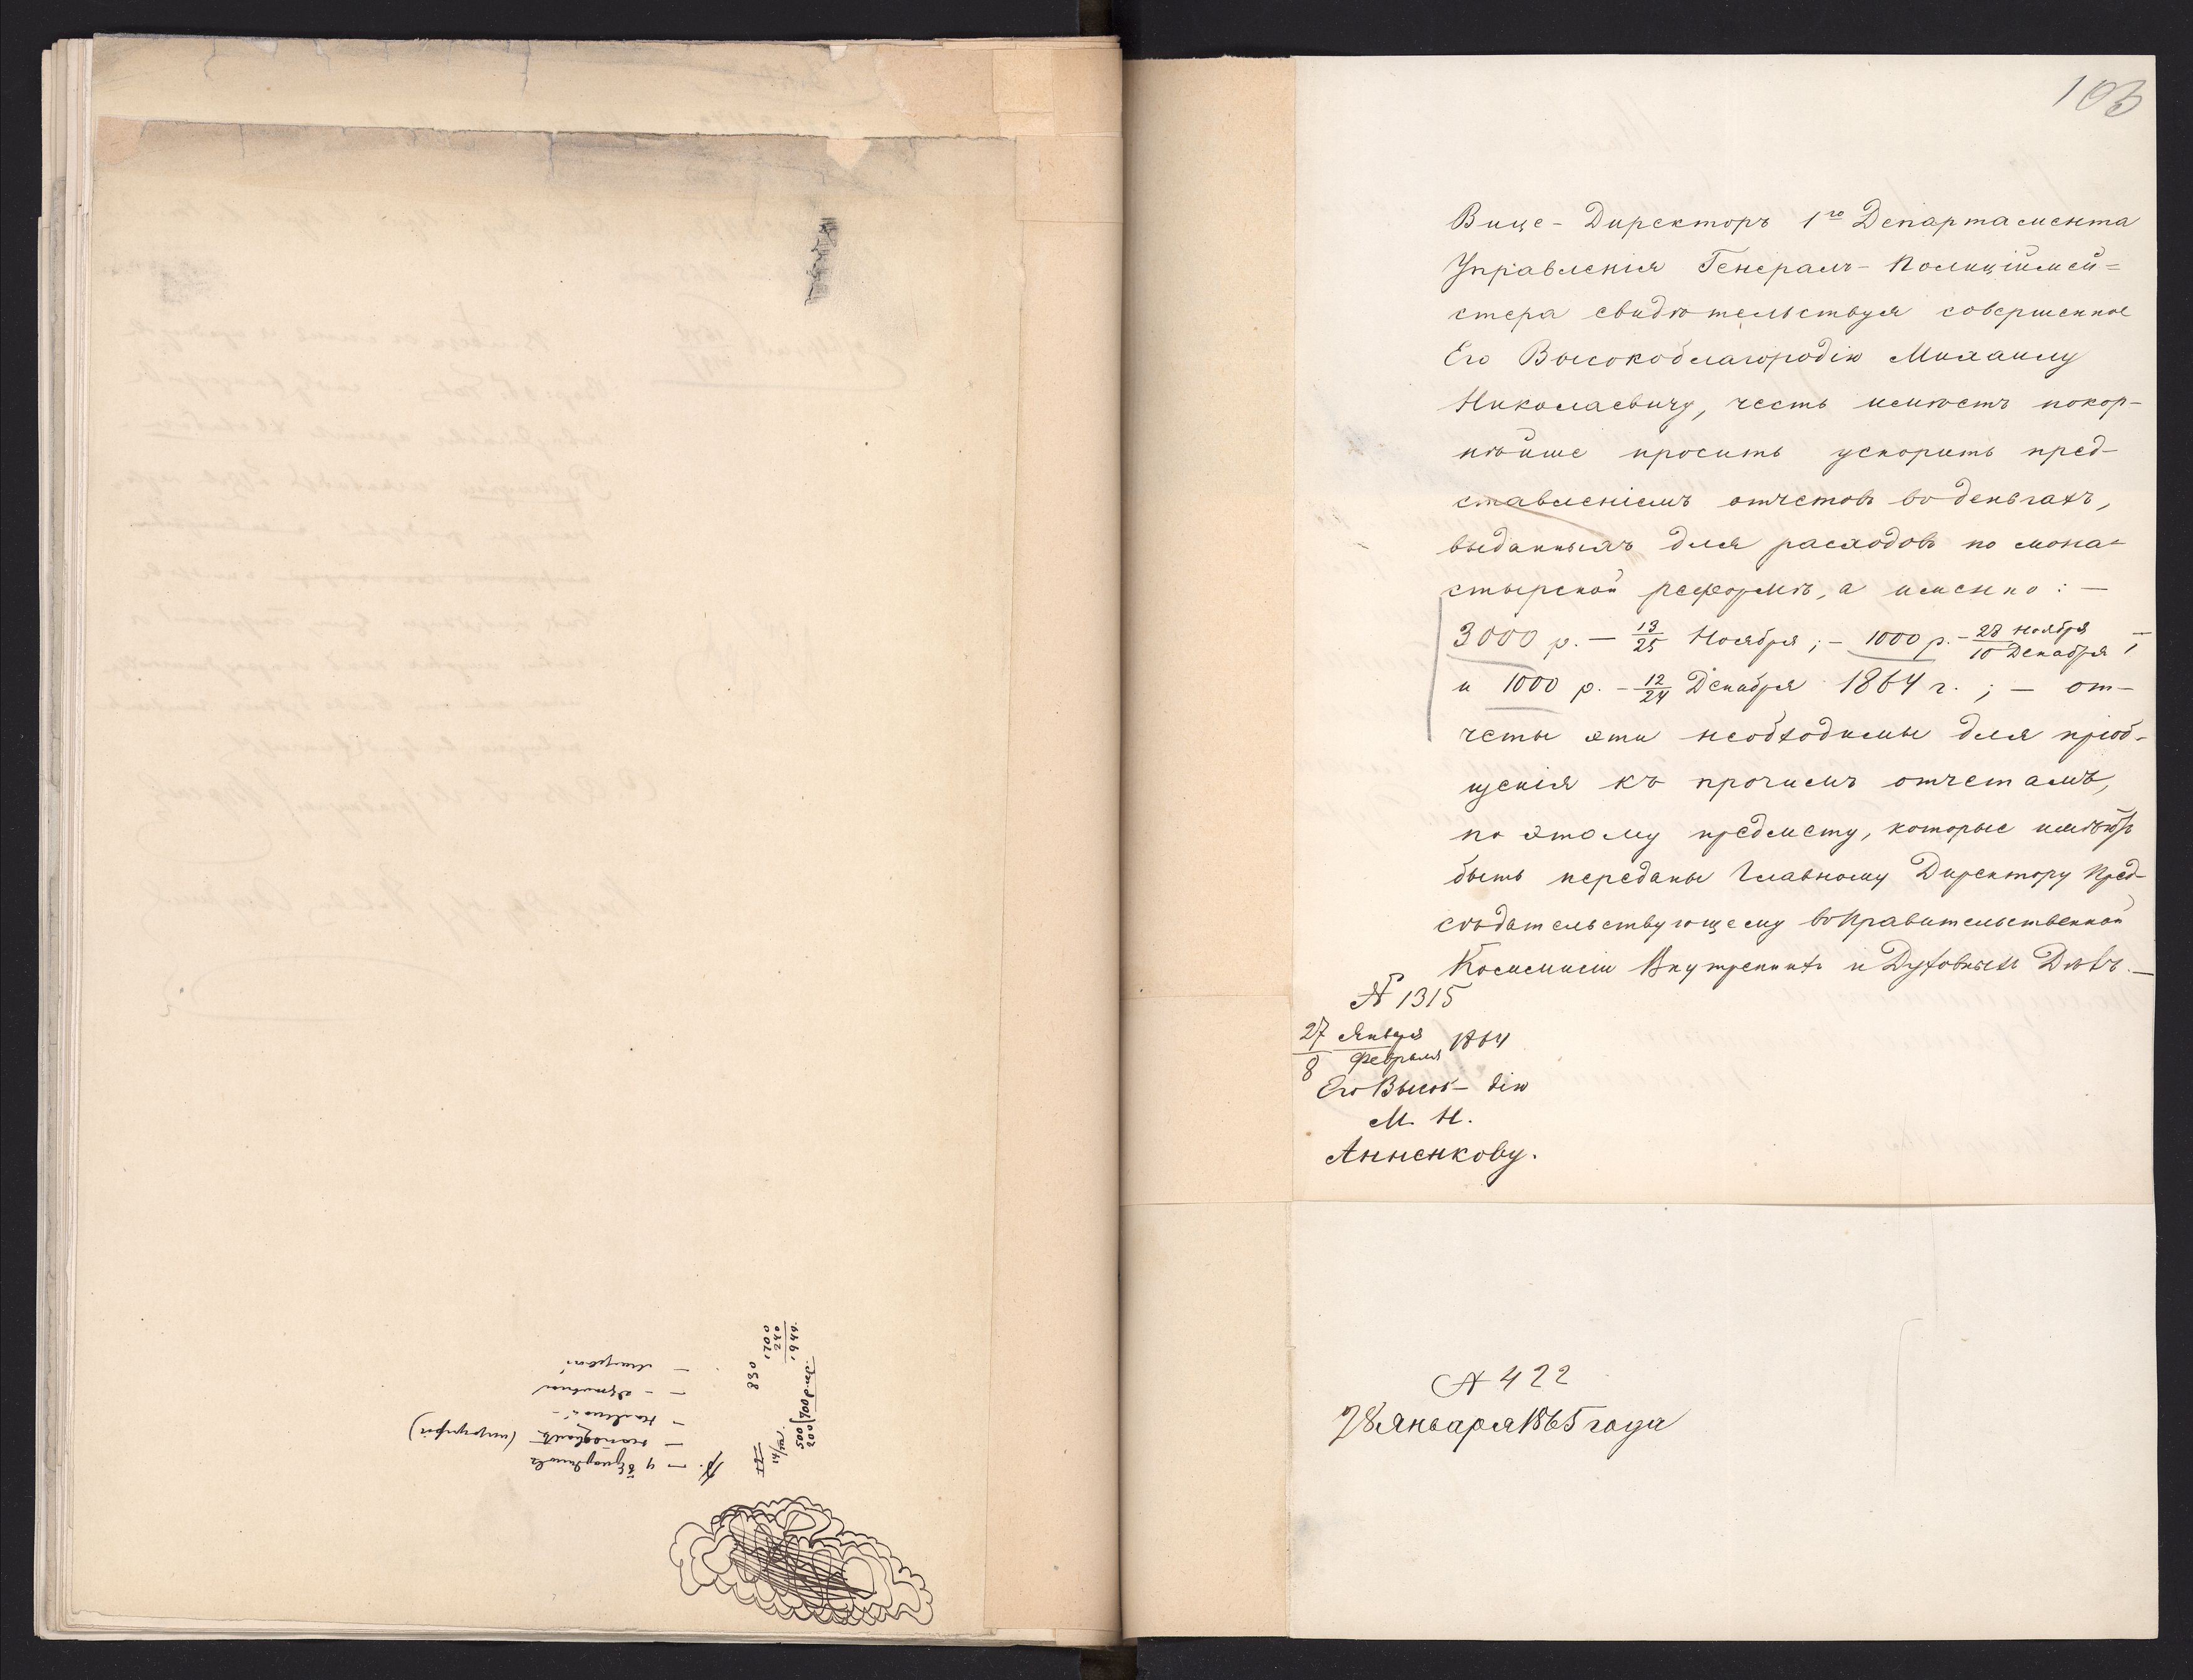 103
Вице-Директоръ 1го Департамента
Управленія Генералъ-Полиціймей=
стера свидѣтельствуя совершенное
Его Высокоблагородію Михаилу
Николаевичу, честь имѣетъ покор-
нѣйше просить ускорить пред-
ставленіемъ отчетовъ въ деньгахъ,
выданныхъ для расходовъ по мона-
стырской реформѣ, а именно: —
3000 р. — 13/25 Ноября; — 1000 р. — 28 Ноября/10 Декабря; —
и 1000 р. — 12/24 Декабря 1864 г.; — от-
четы эти необходимы для пріоб-
щенія къ прочимъ отчетамъ,
по этому предмету, которые имѣютъ
быть переданы Главному Директору Пред-
сѣдательствующему въ Правительственной
Коммисіи Внутреннихъ и Духовныхъ Дѣлъ. —
№ 1315
27 Января/8 Февраля 1864
Его Высоб-дію
М. Н.
Анненкову.
№ 422
28 Января 1865 года
830
1700
240
1940.
500
200
700 р. сер.